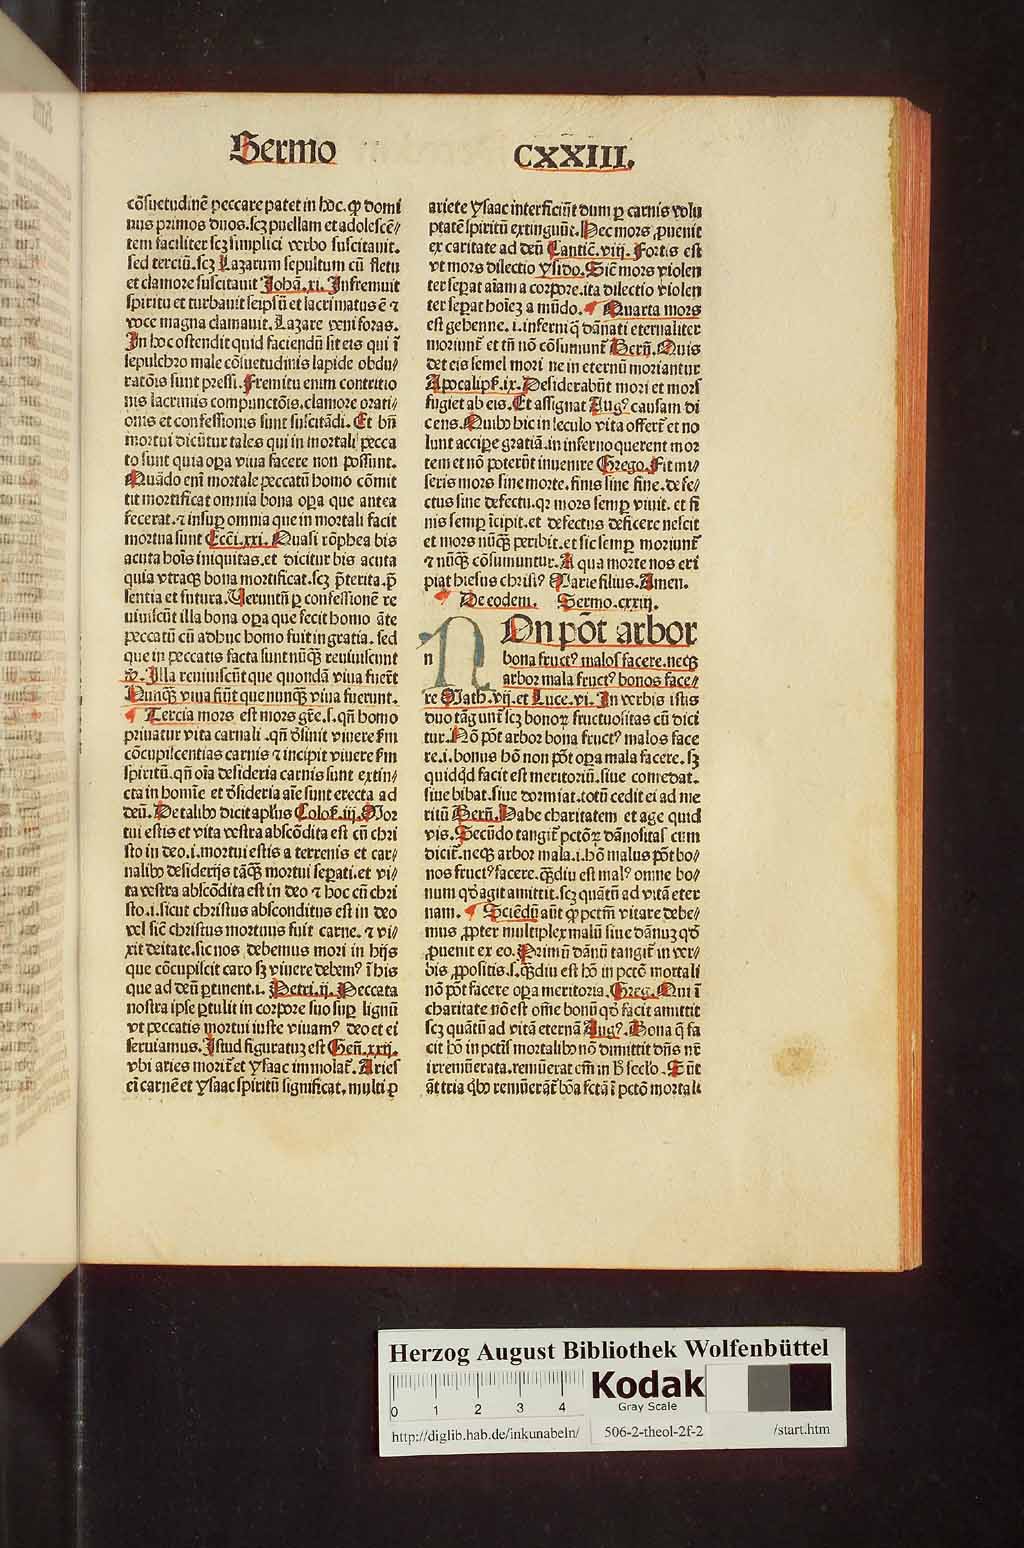 Sermo CXXIII.
cõsuetudinẽ peccare patet in hoc. ꝙ domi
nus primos duos. scʒ puellam et adolescẽ⸗
tem faciliter scʒ simplici verbo suscitauit.
sed terciũ. scʒ Lazarum sepultum cũ fletu
et clamore suscitauit Johã. xi. Infremuit
spiritu et turbauit seipsũ et lacrimatus ẽ ⁊
voce magna clamauit. Lazare veni foras.
In hoc ostendit quid faciendũ sit eis qui ĩ
sepulchro male cõsuetudinis lapide obdu⸗
ratõis sunt pressi. Fremitu enim contritio
nis lacrimis compunctõis. clamore orati⸗
onis et confessionis sunt suscitãdi. Et bñ
mortui dicũtur tales qui in mortali pecca
to sunt quia oꝑa viua facere non possunt.
Quãdo enĩ mortale peccatũ homo cõmit
tit mortificat omnia bona oꝑa que antea
fecerat. ⁊ insuꝑ omnia que in mortali facit
mortua sunt Eccĩ. xxi. Quasi rõphea bis
acuta hoĩs iniquitas. et dicitur bis acuta
quia vtraqꝫ bona mortificat. scʒ p̃terita. p̃
sentia et futura. Veruntñ ꝑ confessionẽ re
uiuiscũt illa bona oꝑa que fecit homo ãte
peccatũ cũ adhuc homo fuit in gratia. sed
que in peccatis facta sunt nũqꝫ reuiuiscunt
Illa reuiuiscũt que quondã viua fuerũt
Nunqꝫ viua fiũt que nunqꝫ viua fuerunt.
¶ Tercia mors est mors gr̃e. s. qñ homo
priuatur vita carnali. qñ desinit viuere ẜm
cõcupiscentias carnis ⁊ incipit viuere ẜm
spiritũ. qñ oĩa desideria carnis sunt extin⸗
cta in homĩe et desideria aĩe sunt erecta ad
deũ. De talibꝰ dicit apl̃us Colos̃. iij. Mor
tui estis et vita vestra abscõdita est cũ chri
sto in deo. i. mortui estis a terrenis et car⸗
nalibꝰ desiderijs tãqꝫ mortui seꝑati. et vi⸗
ta vestra abscõdita est in deo ⁊ hoc cũ chri
sto. i. sicut christus absconditus est in deo
vel sic̃ christus mortuus fuit carne. ⁊ vi⸗
xit deitate. sic nos debemus mori in hijs
que cõcupiscit caro sʒ viuere debemꝰ ĩ his
que ad deũ ꝑtinent. i. Petri. ij. Peccata
nostra ipse ꝑtulit in corpore suo suꝑ lignũ
vt peccatis mortui iuste viuamꝰ deo et ei
seruiamus. Istud figuratuʒ est Geñ. xxij.
vbi aries morit̃ et Ysaac immolat̃. Aries
eĩ carnẽ et Ysaac spiritũ significat. multi ꝑ
ariete Ysaac interficiũt dum ꝑ carnis volu
ptatẽ spiritũ extinguũt. Hec mors ꝓuenit
ex caritate ad deũ Cantic̃. viij. Fortis est
vt mors dilectio ysido. Sic̃ mors violen
ter seꝑat aĩam a corpore. ita dilectio violen
ter seꝑat hoĩeʒ a mũdo. ¶ Quarta mors
est gehenne. i. inferni q̃ dãnati eternaliter
moriunt̃ et tñ nõ cõsumunt̃ Berñ. Quis
det eis semel mori ne in eternũ moriantur
Apocalips̃. ix. Desiderabũt mori et mors
fugiet ab eis. Et assignat Augꝰ causam di
cens. Quibꝰ hic in seculo vita offert̃ et no
lunt acciꝑe gratiã. in inferno querent mor
tem et nõ poterũt inuenire Grego. Fit mi⸗
seris mors sine morte. finis sine fine. defe⸗
ctus sine defectu. qꝛ mors semꝑ viuit. et fi
nis semꝑ ĩcipit. et defectus deficere nescit
et mors nũqꝫ peribit. et sic semꝑ moriunt̃
⁊ nũqꝫ cõsumuntur. A qua morte nos eri
piat hiesus christꝰ Marie filius. Amen.
¶ De eodem. Sermo. cxxiij.
NOn põt arbor
n bona fructꝰ malos facere. neqꝫ
arbor mala fructꝰ bonos face⸗
re Math. vij. et Luce. vi. In verbis istis
duo tãgunt̃ scʒ bonoꝝ fructuositas cũ dici
tur. Nõ põt arbor bona fructꝰ malos face
re. i. bonus hõ non põt oꝑa mala facere. sʒ
quidqd facit est meritoriũ. siue comedat.
siue bibat. siue dormiat. totũ cedit ei ad me
ritũ Berñ. Habe charitatem et age quid
vis. Secũdo tangit̃ pctõꝝ dãnositas cum
dicit̃. neqꝫ arbor mala. i. hõ malus põt bo⸗
nos fructꝰ facere. qꝫdiu est malꝰ omne bo⸗
num qd̓ agit amittit. scʒ quãtũ ad vitã eter
nam. ¶ Sciẽdũ aũt ꝙ pctm̃ vitare debe⸗
mus ꝓpter multiplex malũ siue dãnuʒ qd̓
ꝓuenit ex eo. Primũ dãnũ tangit̃ in ver⸗
bis ꝓpositis. s. qꝫdiu est hõ in pctõ mortali
nõ põt facere oꝑa meritoria. Greg. Qui ĩ
charitate nõ est om̃e bonũ qd̓ facit amittit
scʒ quãtũ ad vitã eternã Augꝰ. Bona q̃ fa
cit hõ in pctĩs mortalibꝰ nõ dimittit dñs nr̃
irremũerata. remũerat em̃ in hͦ sec̃lo. Sũt
ãt tria qbꝰ remũerãt̃ bõa fctã ĩ pctõ mortali
Herzog August Bibliothek Wolfenbüttel
0 1 2 3 4
Kodak
Gray Scale
http://diglib.hab.de/inkunabeln/ 506-2-theol-2f-2 /start.htm